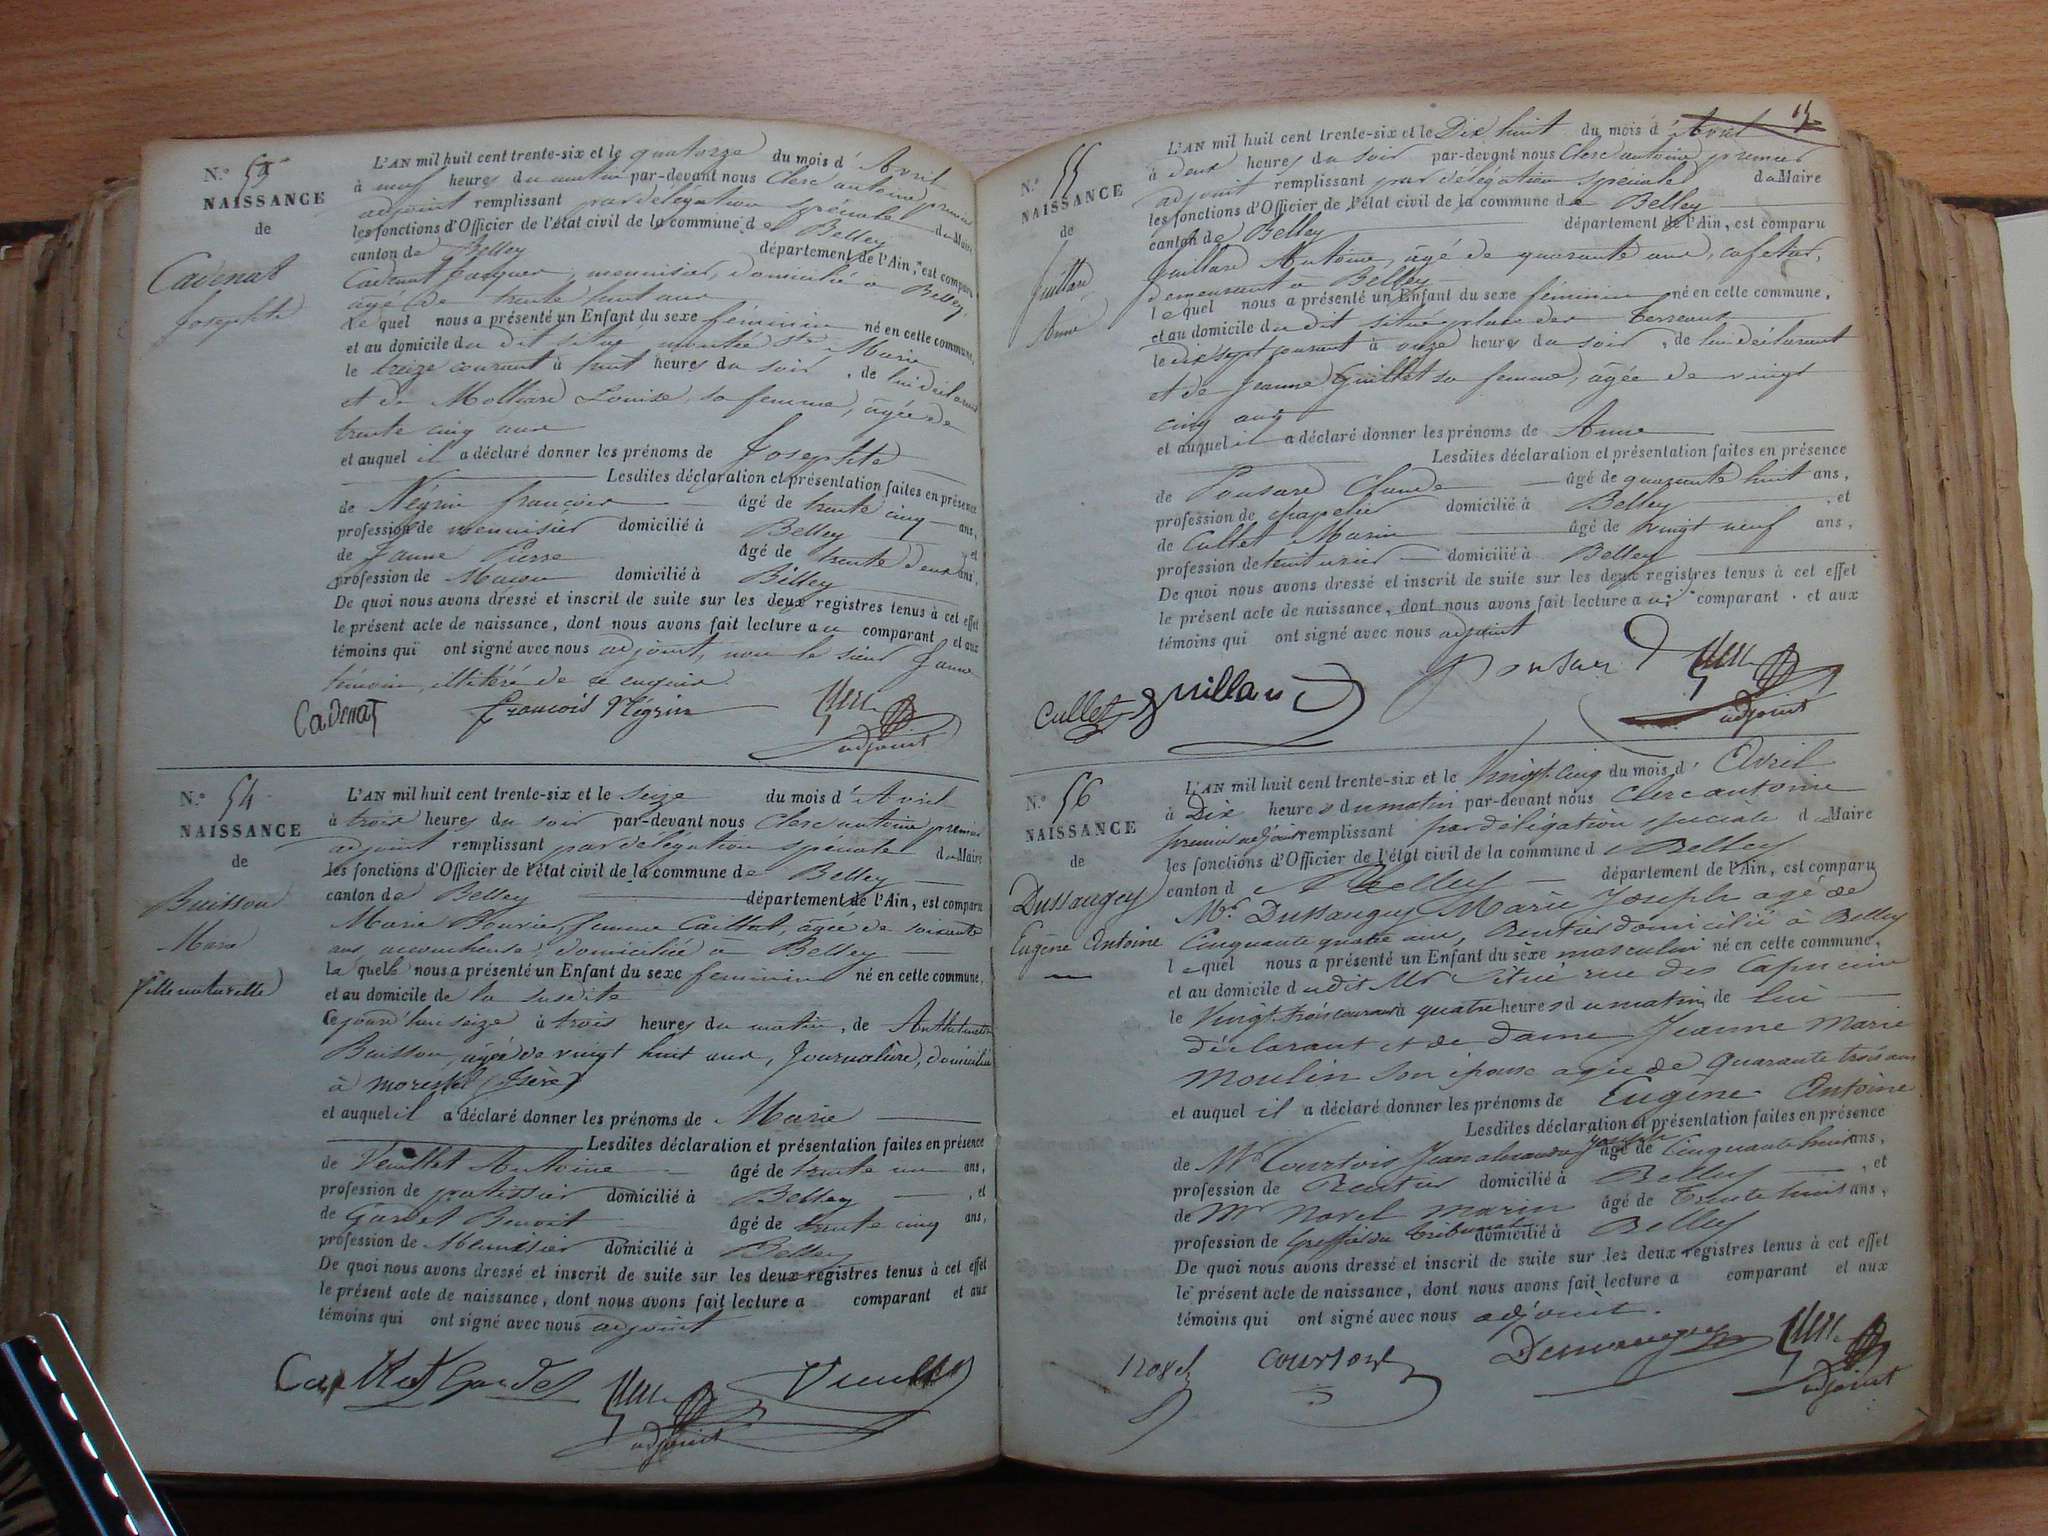 N.º 53
NAISSANCE
de
Cadenat
Josephte
L'AN mil huit cent trente-six et le quatorze du mois d' Avril
à neuf heures du matin par-devant nous Clerc antoine premier
adjoint remplissant par délégation spéciale du Maire
les fonctions d'Officier de l'état civil de la commune de Belley
canton de Belley département de l'Ain, est comparu
Cadenat Jacques, menuisier, domicilié à Belley,
âgé de trente huit ans
Le quel nous a présenté un Enfant du sexe féminin né en cette commune,
et au domicile du dit situé montée Ste Marie
le treize courant à huit heures du soir, de lui déclarant
et de Molliard Louise, sa femme, âgée de
trente cinq ans
et auquel il a déclaré donner les prénoms de Josephte
Lesdites déclaration et présentation faites en présence
de Négrin françois âgé de trente cinq ans,
profession de menuisier domicilié à Belley et
de Janne Pierre âgé de trente deux ans,
profession de Macon domicilié à Belley
De quoi nous avons dressé et inscrit de suite sur les deux registres tenus à cet effet
le présent acte de naissance, dont nous avons fait lecture au comparant et aux
témoins qui ont signé avec nous adjoint, non le sieur Janne
témoin, illitéré de ce enquis
Cadenat françois Negrin Clerc
adjoint
N.º 54
NAISSANCE
de
Buisson
Marie
fille naturelle
L'AN mil huit cent trente-six et le seize du mois d' Avril
à trois heures du soir par-devant nous Clerc antoine premier
adjoint remplissant par délégation spéciale du Maire
les fonctions d'Officier de l'état civil de la commune de Belley
canton de Belley département de l'Ain, est comparu
Marie Bouvier, femme Caillat, âgée de soixante
ans, accoucheuse, domiciliée à Belley
La quelle nous a présenté un Enfant du sexe feminin né en cette commune,
et au domicile de la susdite
Cejourd'hui seize à trois heures du matin, de Anthelmette
Buisson, âgée de vingt huit ans, Journalière, domiciliée
à morestel (Isère)
et auquel il a déclaré donner les prénoms de Marie
Lesdites déclaration et présentation faites en présence
de Veuillet Antoine âgé de trente un ans,
profession de patissier domicilié à Belley, et
de Gardet Benoit âgé de trente cinq ans,
profession de Menuisier domicilié à Belley
De quoi nous avons dressé et inscrit de suite sur les deux registres tenus à cet effet
le présent acte de naissance, dont nous avons fait lecture a comparant et aux
témoins qui ont signé avec nous adjoint
Caillat Gardet Clerc
adjoint
15
N.º 55
NAISSANCE
de
Guillard
Anne
L'AN mil huit cent trente-six et le Dix huit du mois d' Avril
à deux heures du soir par-devant nous Clerc antoine premier
adjoint remplissant par délégation spéciale du Maire
les fonctions d'Officier de l'état civil de la commune de Belley
canton de Belley département de l'Ain, est comparu
Guillard Antoine, âgé de quarante ans, cafetier,
demeurant à Belley
lequel nous a présenté un Enfant du sexe féminin né en cette commune,
et au domicile du dit situé place des Terreaux
le dix sept courant à onze heures du soir, de lui déclarant
et de Jeanne Guillet sa femme, âgée de vingt
cinq ans
et auquel il a déclaré donner les prénoms de Anne
Lesdites déclaration et présentation faites en présence
de Ponsard Claude âgé de quarante huit ans,
profession de chapelier domicilié à Belley, et
de Cullet Marin âgé de vingt neuf ans,
profession de teinturier domicilié à Belley
De quoi nous avons dressé et inscrit de suite sur les deux registres tenus à cet effet
le présent acte de naissance, dont nous avons fait lecture au comparant et aux
témoins qui ont signé avec nous adjoint
Cullet guillard Ponsard Clerc
adjoint
N.º 56
NAISSANCE
de
Dussaugey
Eugène Antoine
L'AN mil huit cent trente-six et le Vingt cinq du mois d' Avril
à Dix heures du matin par-devant nous Clerc antoine
premier adjoint remplissant par délégation spéciale du Maire
les fonctions d'Officier de l'état civil de la commune de Belley
canton de Belley département de l'Ain, est comparu
Mr. Dussaugey Marie Joseph agé de
Cinquante quatre ans, Rentier domicilié à Belley
lequel nous a présenté un Enfant du sexe masculin né en cette commune,
et au domicile dudit Mr situé rue des Capucins
le Vingt trois courant à quatre heures du matin, de lui
déclarant et de dame Jeanne Marie
Moulin son épouse agée de Quarante trois ans
et auquel il a déclaré donner les prénoms de Eugène Antoine
Lesdites déclaration et présentation faites en présence
de Mr Courtois Jean alexandre Joseph âgé de Cinquante huit ans,
profession de Rentier domicilié à Belley, et
de Mr Novel Marin âgé de Trente huit ans,
profession de Greffier du Tribunal domicilié à Belley
De quoi nous avons dressé et inscrit de suite sur les deux registres tenus à cet effet
le présent acte de naissance, dont nous avons fait lecture a comparant et aux
témoins qui ont signé avec nous adjoint.
Novel Courtois Clerc
adjoint